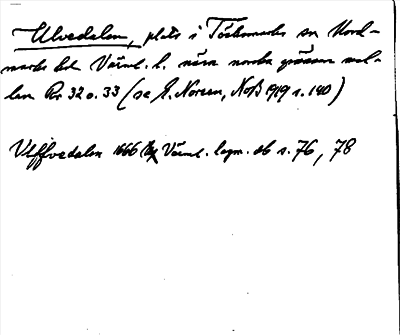 Ulvedalen, plats i Töcksmarks sn Nord-
marks hd Värml. l. nära norska gränsen mel-
lan Rr 32 o. 33 (se E. Noreen, NoB 1919 s. 140)
Vlffvedalen 1666 Värml. lagm. db s. 76, 78